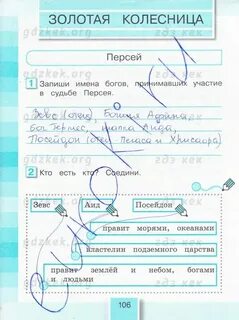 ЗОЛОТАЯ КОЛЕСНИЦА
Персей
1 Запиши имена богов, принимавших участие
в судьбе Персея.
Зевс (отец), Богиня Афина,
бог Гермес, шапка Аида,
Посейдон (отец Пегаса и Хрисаора)
2 Кто есть кто? Соедини.
Зевс Аид Посейдон
правит морями, океанами
властелин подземного царства
правит землёй и небом, богами
и людьми
106